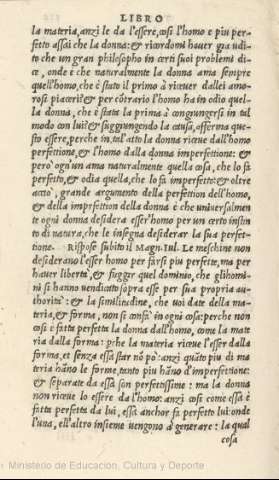 LIBRO
la materia, anzi le da l'essere, cosi l'homo è piu per-
fetto assai che la donna: & ricordomi hauer gia udi-
to che un gran philosopho in certi suoi problemi di-
ce, onde è che naturalmente la donna ama sempre
quell'homo, che è stato il primo à riceuer dallei amo-
rosi piaceri? & per cõtrario l'homo ha in odio quel-
la donna, che è stata la prima à congiungersi in tal
modo con lui? & suggiungendo la causa, afferma que-
sto essere, perche in tal'atto la donna riceue dall'homo
perfettione, & l'homo dalla donna imperfettione: &
però ogn'un ama naturalmente quella cosa, che lo fa
perfetto, & odia quella, che lo fa imperfetto: & oltre
acciò, grande argumento della perfettion dell'homo,
& della imperfettion della donna è che uniuersalmen-
te ogni donna desidera esser homo per un certo instin
to di natura, che le insegna desiderar la sua perfet-
tione. Rispose subito il Magn. Iul. Le meschine non
desiderano l'esser homo per farsi piu perfette, ma per
hauer libertà, & fuggir quel dominio, che gli homi-
ni si hanno uendicatto sopra esse per sua propria au-
thorità: & la similitudine, che uoi date della ma-
teria, & forma, non si confà in ogni cosa: perche non
cosi è fatta perfetta la donna dall'homo, come la mate
ria dalla forma: pche la materia riceue l'esser dalla
forma, et senza essa star nõ pò: anzi quãto piu di ma
teria hãno le forme, tanto piu hãno d'imperfettione:
& separate da essa son perfettissime: ma la donna
non riceue lo essere da l'homo: anzi cosi come essa è
fatta perfetta da lui, essa anchor fa perfetto lui: onde
l'una, e l'altro insieme uengono à generare: la qual
cosa
Ministerio de Educación, Cultura y Deporte